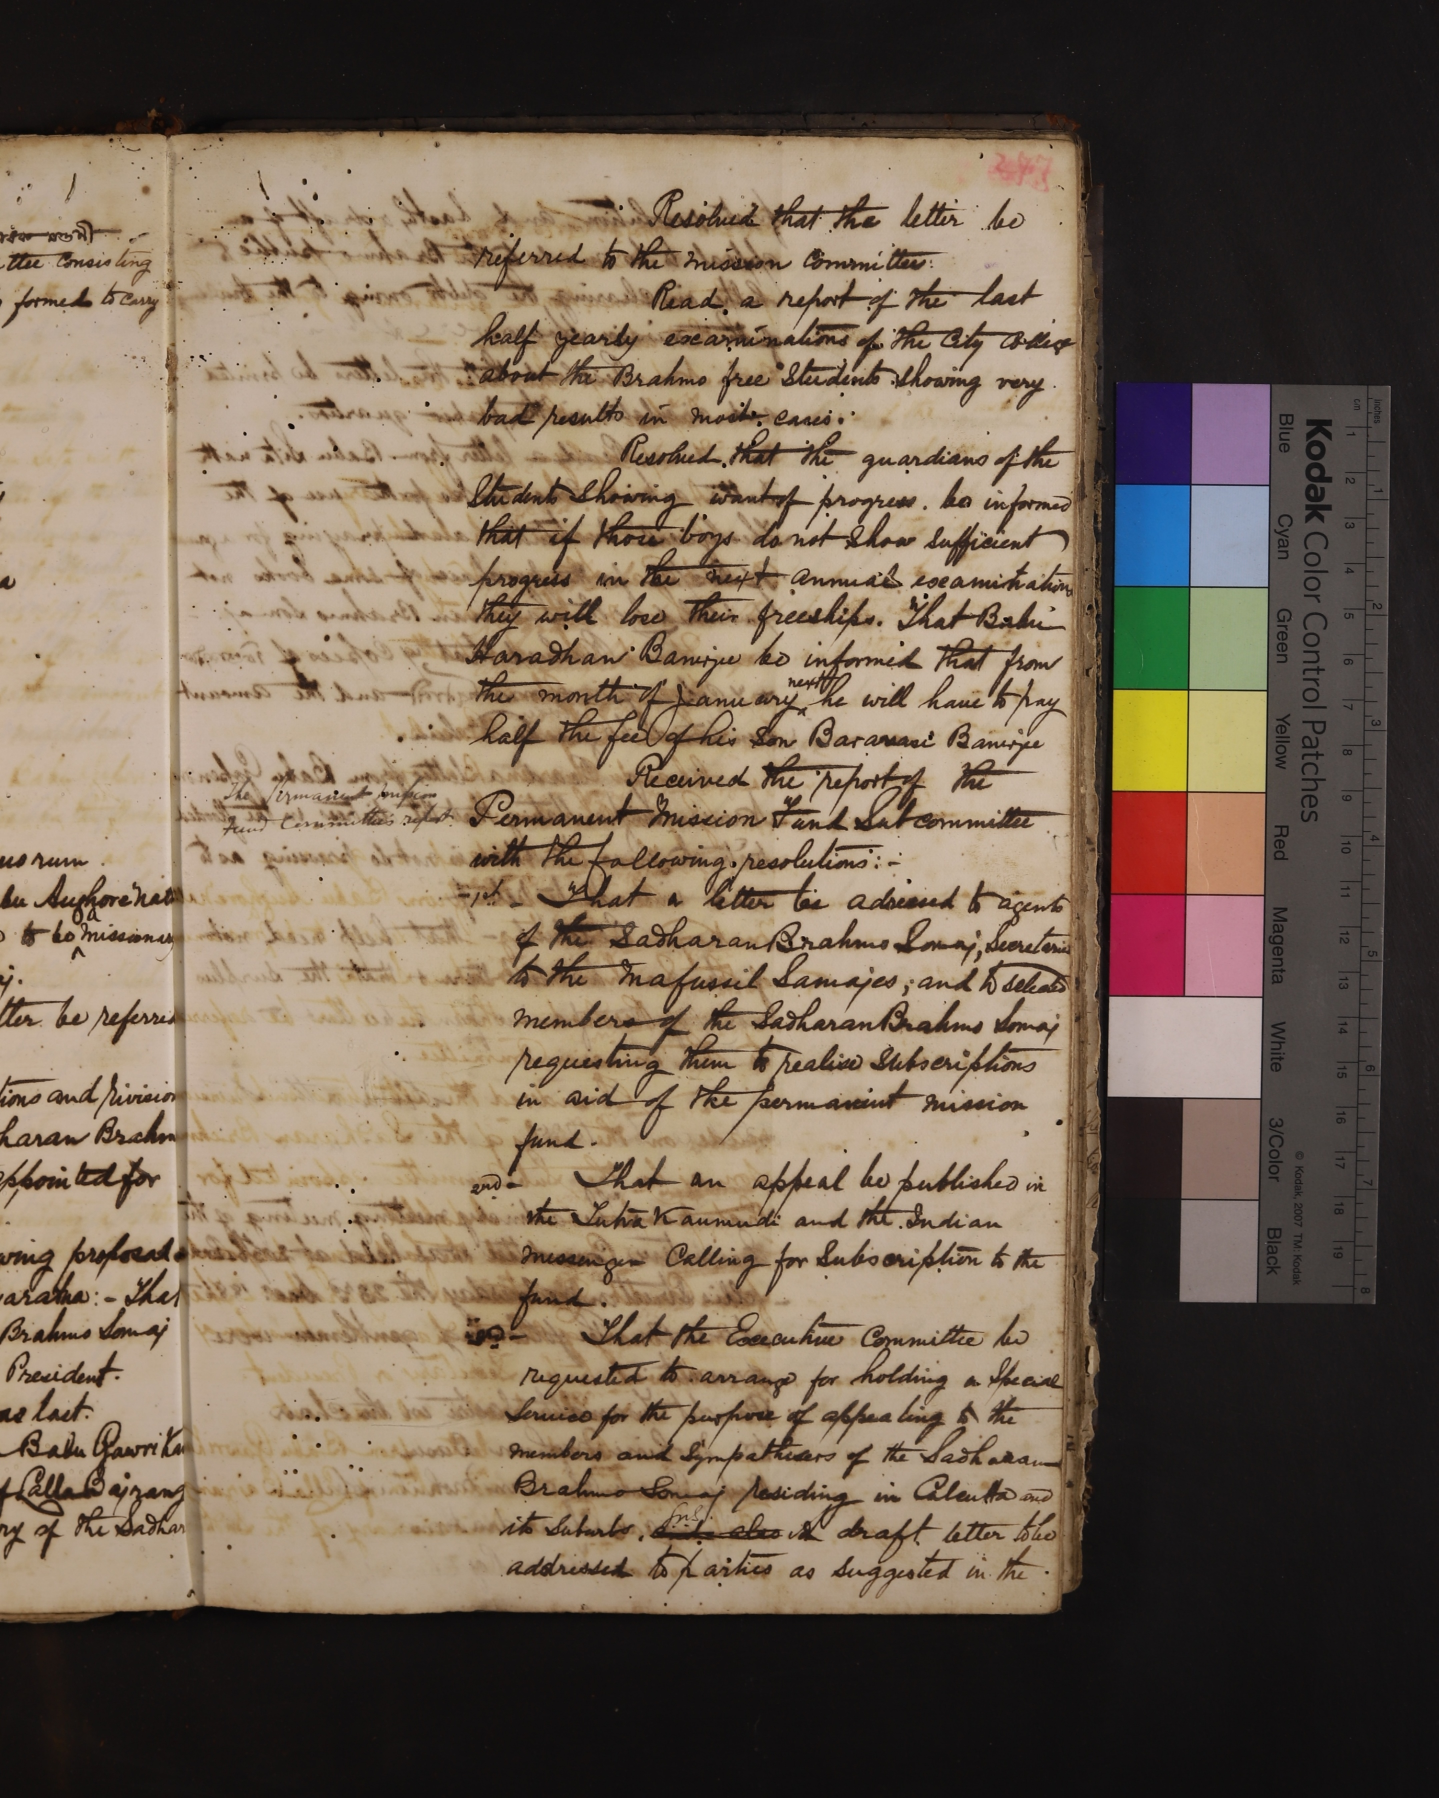 ttee consisting
formed to carry
usrum.
bu Aughorenat
to be a missionary
tter be referred
tions and rivision
haran Brahm
appointed for
wing proposal
aratna:- That
Brahmo Somaj
President.
as last.
Babu Gowri Ka
of Lalla Bajrang
ry of the Sadhar
Resolved that the letter be
referred to the mission committee.
Read a report of the last
half yearly examinations of the City College
about the Brahmo free Students showing very
bad results in most cases.
Resolved that the guardians of the
Students showing want of progress be informed
that if those boys do not show sufficient
progress in the next annual examination
they will lose their freeships. That Babu
Haradhan Banerjee be informed that from
the month of January next he will have to pay
half the fee of his son Baranasi Banerjee
Received the report of the
The Permanent mission
Fund Committee's report.
Permanent Mission Fund Subcommittee
with the following resolutions:-
1st - That a letter be adressed to agents
of the Sadharan Brahmo Somaj, Secretaries
to the Mafussil Samajes; and to selected
members of the Sadharan Brahmo Somaj
requesting them to realise subscriptions
in aid of the permanent mission
fund.
2nd - That an appeal be published in
the Tatva Kaumudi and the Indian
Messenger Calling for Subscription to the
fund.
3rd - That the Executive Committee be
requested to arrange for holding a Special
Service for the purpose of appealing to the
members and Sympathisers of the Sadharan
Brahmo Somaj residing in Calcutta and
its Suburbs. draft letter to be
addressed to parties as suggested in the
Kodak Color Control Patches
Blue Cyan Green Yellow Red Magenta White 3/Color Black
© Kodak, 2007 TM: Kodak
inches 1 2 3 4 5 6 7 8
cm 1 2 3 4 5 6 7 8 9 10 11 12 13 14 15 16 17 18 19